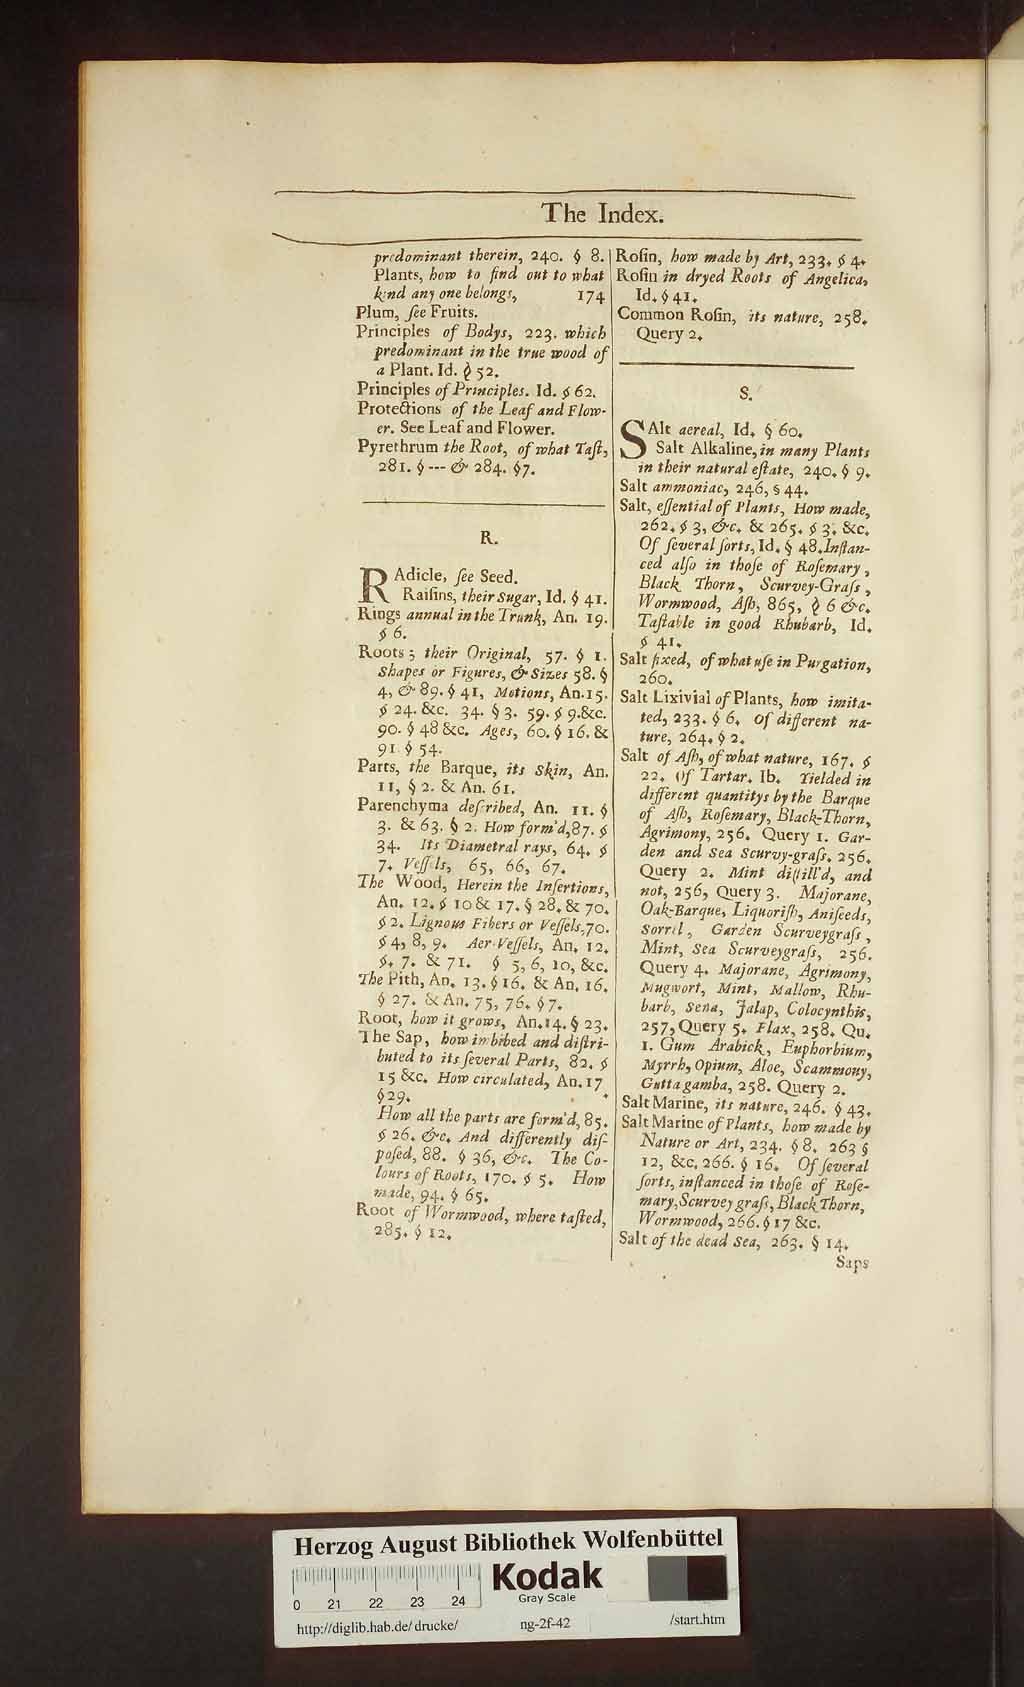 The Index.
predominant therein, 240. § 8.
Plants, how to find out to what
kind any one belongs, 174
Plum, ſee Fruits.
Principles of Bodys, 223. which
predominant in the true wood of
a Plant. Id. § 52.
Principles of Principles. Id. § 62.
Protections of the Leaf and Flow-
er. See Leaf and Flower.
Pyrethrum the Root, of what Taſt,
281. § --- & 284. §7.
R.
RAdicle, ſee Seed.
Raiſins, their Sugar, Id. § 41.
Rings annual in the Trunk, An. 19.
§ 6.
Roots; their Original, 57. § 1.
Shapes or Figures, & Sizes 58. §
4, & 89. § 41, Motions, An. 15.
§ 24. &c. 34. § 3. 59. § 9. &c.
90. § 48 &c. Ages, 60. § 16. &
91 § 54.
Parts, the Barque, its Skin, An.
11, § 2. & An. 61.
Parenchyma deſcribed, An. 11. §
3. & 63. § 2. How form'd, 87. §
34. Its Diametral rays, 64. §
7. Veſſels, 65, 66, 67.
The Wood, Herein the Inſertions,
An. 12. § 10 & 17. § 28. & 70.
§ 2. Lignous Fibers or Veſſels, 70.
§ 4, 8, 9. Aer-Veſſels, An. 12.
§. 7. & 71. § 5, 6, 10, &c.
The Pith, An. 13. § 16. & An. 16.
§ 27. & An. 75, 76. § 7.
Root, how it grows, An. 14. § 23.
The Sap, how imbibed and diſtri-
buted to its ſeveral Parts, 82. §
15 &c. How circulated, An. 17
§29.
How all the parts are form'd, 85.
§ 26. &c. And differently diſ-
poſed, 88. § 36, &c. The Co-
lours of Roots, 170. § 5. How
made, 94. § 65.
Root of Wormwood, where taſted,
285. § 12.
Roſin, how made by Art, 233. § 4.
Roſin in dryed Roots of Angelica,
Id. § 41.
Common Roſin, its nature, 258.
Query 2.
S.
SAlt aereal, Id. § 60.
Salt Alkaline, in many Plants
in their natural eſtate, 240. § 9.
Salt ammoniac, 246, § 44.
Salt, eſſential of Plants, How made,
262. § 3, &c. & 265. § 3. &c.
Of ſeveral ſorts, Id. § 48. Inſtan-
ced alſo in thoſe of Roſemary,
Black Thorn, Scurvey-Graſs,
Wormwood, Aſh, 865, § 6 &c.
Taſtable in good Rhubarb, Id.
§ 41.
Salt fixed, of what uſe in Purgation,
260.
Salt Lixivial of Plants, how imita-
ted, 233. § 6. Of different na-
ture, 264. § 2.
Salt of Aſh, of what nature, 167. §
22. Of Tartar. Ib. Yielded in
different quantitys by the Barque
of Aſh, Roſemary, Black-Thorn,
Agrimony, 256. Query 1. Gar-
den and Sea Scurvy-graſs. 256.
Query 2. Mint diſtill'd, and
not, 256, Query 3. Majorane,
Oak-Barque, Liquoriſh, Aniſeeds,
Sorrel, Garden Scurveygraſs,
Mint, Sea Scurveygraſs, 256.
Query 4. Majorane, Agrimony,
Mugwort, Mint, Mallow, Rhu-
barb, Sena, Jalap, Colocynthis,
257, Query 5. Flax, 258. Qu.
1. Gum Arabick, Euphorbium,
Myrrh, Opium, Aloe, Scammony,
Gutta gamba, 258. Query 2.
Salt Marine, its nature, 246. § 43.
Salt Marine of Plants, how made by
Nature or Art, 234. § 8. 263 §
12, &c. 266. § 16. Of ſeveral
ſorts, inſtanced in thoſe of Roſe-
mary, Scurvey graſs, Black Thorn,
Wormwood, 266. § 17 &c.
Salt of the dead Sea, 263. § 14.
Saps
Herzog August Bibliothek Wolfenbüttel
Kodak
Gray Scale
0 21 22 23 24
http://diglib.hab.de/drucke/ ng-2f-42 /start.htm